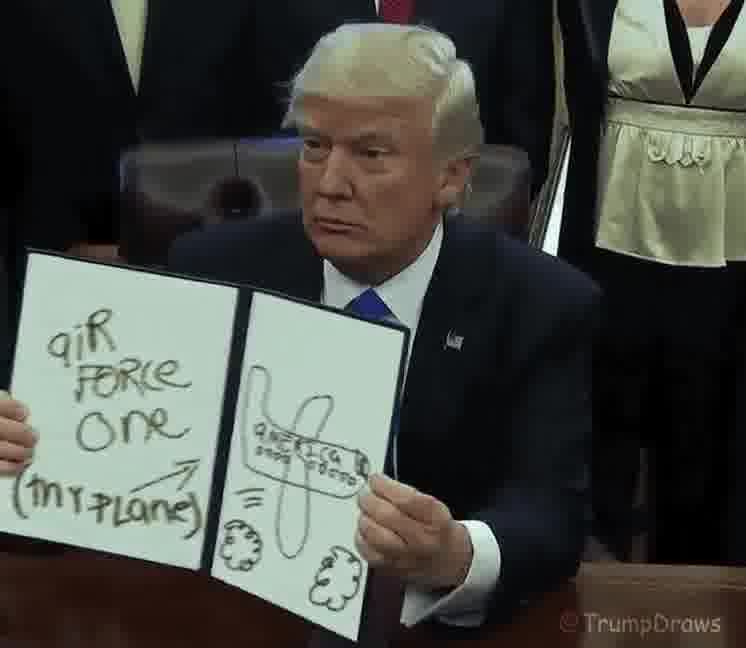 aiR
FORCE
one
(my PLane)
aMERICa
© TrumpDraws